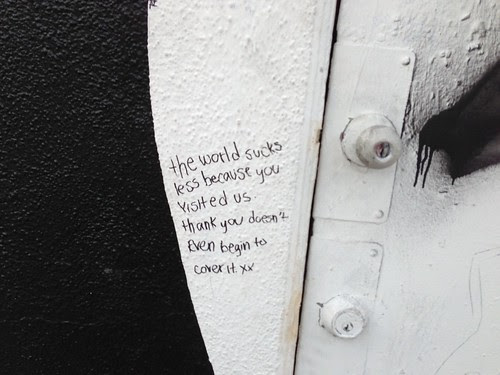 the world sucks
less because you
visited us.
thank you doesn't
Even begin to
cover it xx